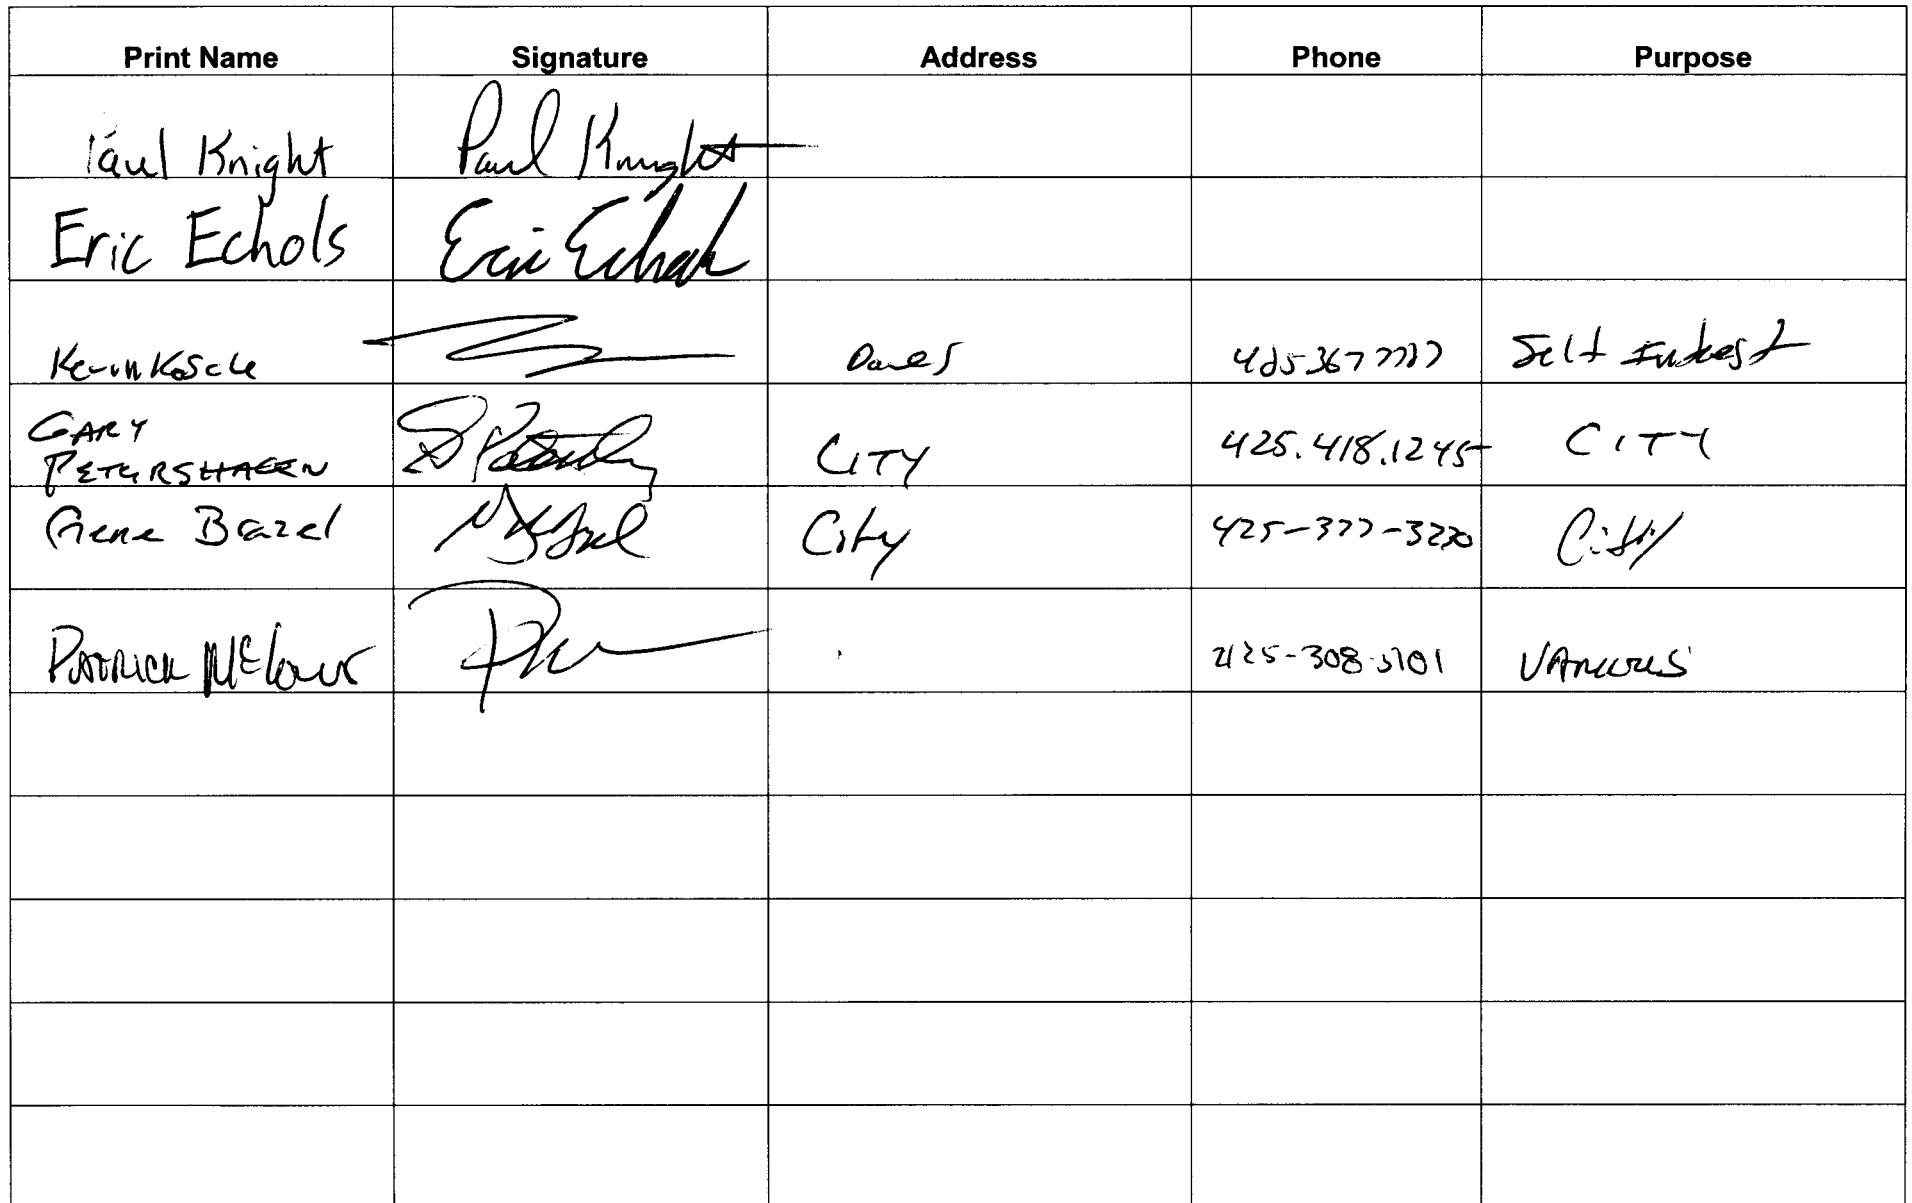 Print Name Signature Address Phone Purpose
Paul Knight Paul Knight
Eric Echols Eric Echols
Kevin Kosche
Self Interest
GARY
PETERSHAGEN CITY 425.418.1245 CITY
Gene Brazel City 425-377-3230 City
PATRICK 425-308-5101 VARIOUS